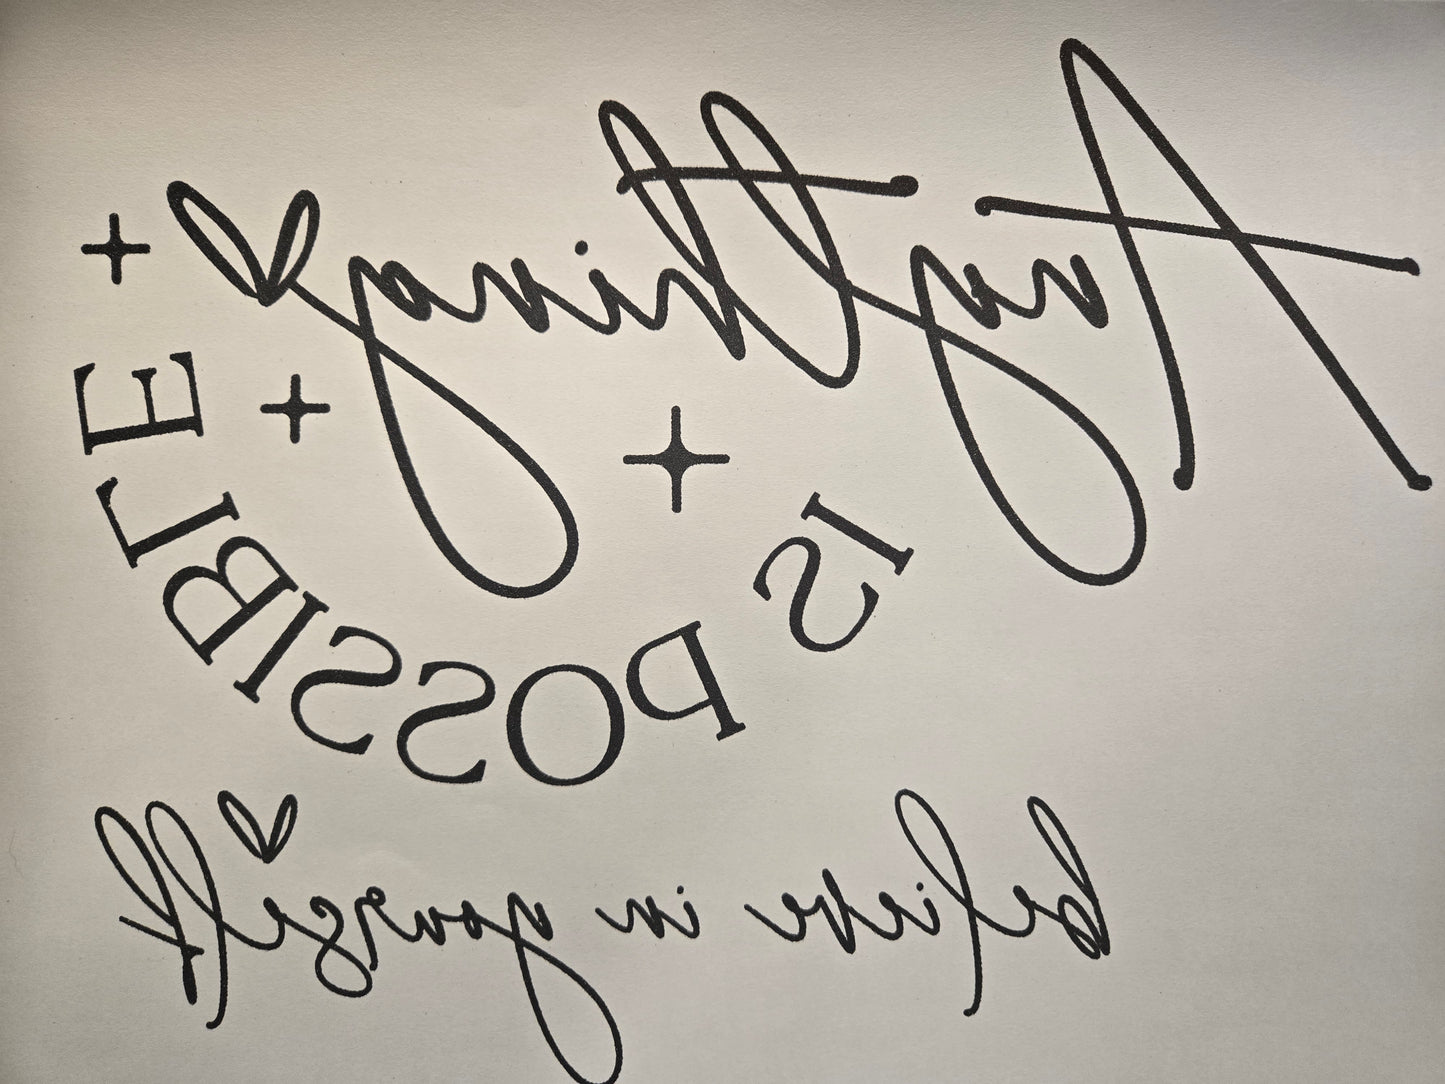 Anything
IS POSSIBLE
believe in yourself